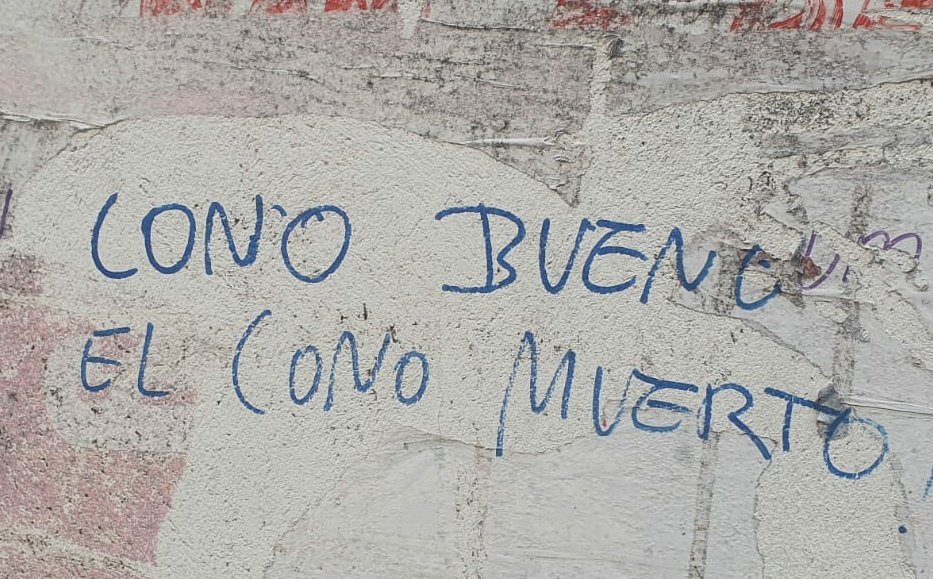 CONO BUENO
EL CONO MUERTO